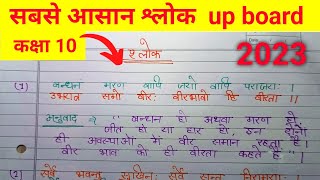 सबसे आसान श्लोक up board
कक्षा 10
2023
श्लोक
(1) बन्धनं मरणं वापि जयो वापि पराजयः ।
उभयत्र समो वीरः वीरभावो हि वीरता ।।
अनुवाद → "बन्धन हो अथवा मरण हो
जीत हो या हार हो, इन दोनों
ही अवस्थाओं में वीर समान रहता है।
वीर भाव को ही वीरता कहते हैं"।
(2) सर्वे भवन्तु सुखिनः सर्वे सन्तु निरामयाः ।